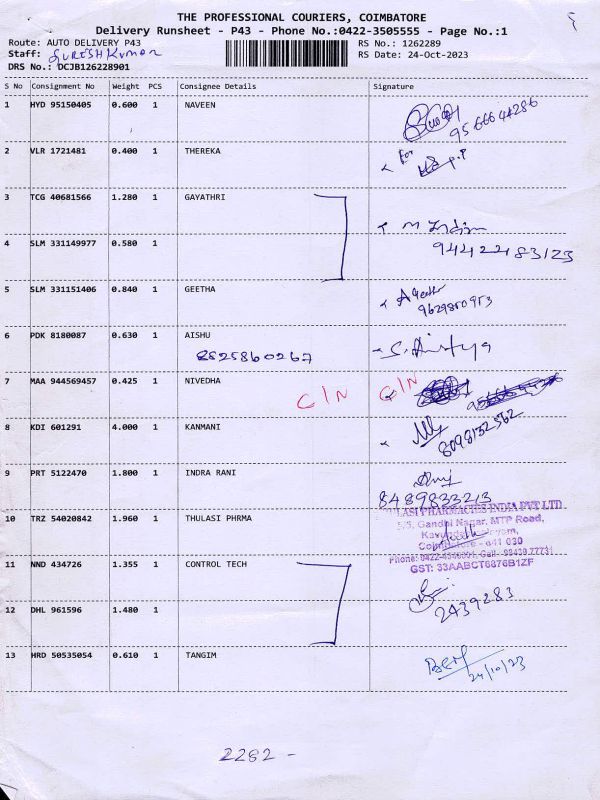 THE PROFESSIONAL COURIERS, COIMBATORE
Delivery Runsheet - P43 - Phone No.:0422-3505555 - Page No.:1
Route: AUTO DELIVERY P43 RS No.: 1262289
Staff: SURESH KUMAR RS Date: 24-Oct-2023
DRS No.: DCJB126228901
S No Consignment No Weight PCS Consignee Details Signature
1 HYD 95150405 0.600 1 NAVEEN
9566644286
2 VLR 1721481 0.400 1 THEREKA
For
3 TCG 40681566 1.280 1 GAYATHRI
4 SLM 331149977 0.580 1
9442483123
5 SLM 331151406 0.840 1 GEETHA
9629850953
6 PDK 8180087 0.630 1 AISHU
7 MAA 944569457 0.425 1 NIVEDHA C/N C/N
8 KDI 601291 4.000 1 KANMANI
8098152562
9 PRT 5122470 1.800 1 INDRA RANI
8489833213
10 TRZ 54020842 1.960 1 THULASI PHRMA
PHARMACIES INDIA PVT LTD
5/5, Gandhi Nagar, MTP Road,
Coimbatore - 641 030
GST: 33AABCT6876B1ZF
11 NND 434726 1.355 1 CONTROL TECH
2439283
12 DHL 961596 1.480 1
13 HRD 50535054 0.610 1 TANGIM
24/10/23
2282 -